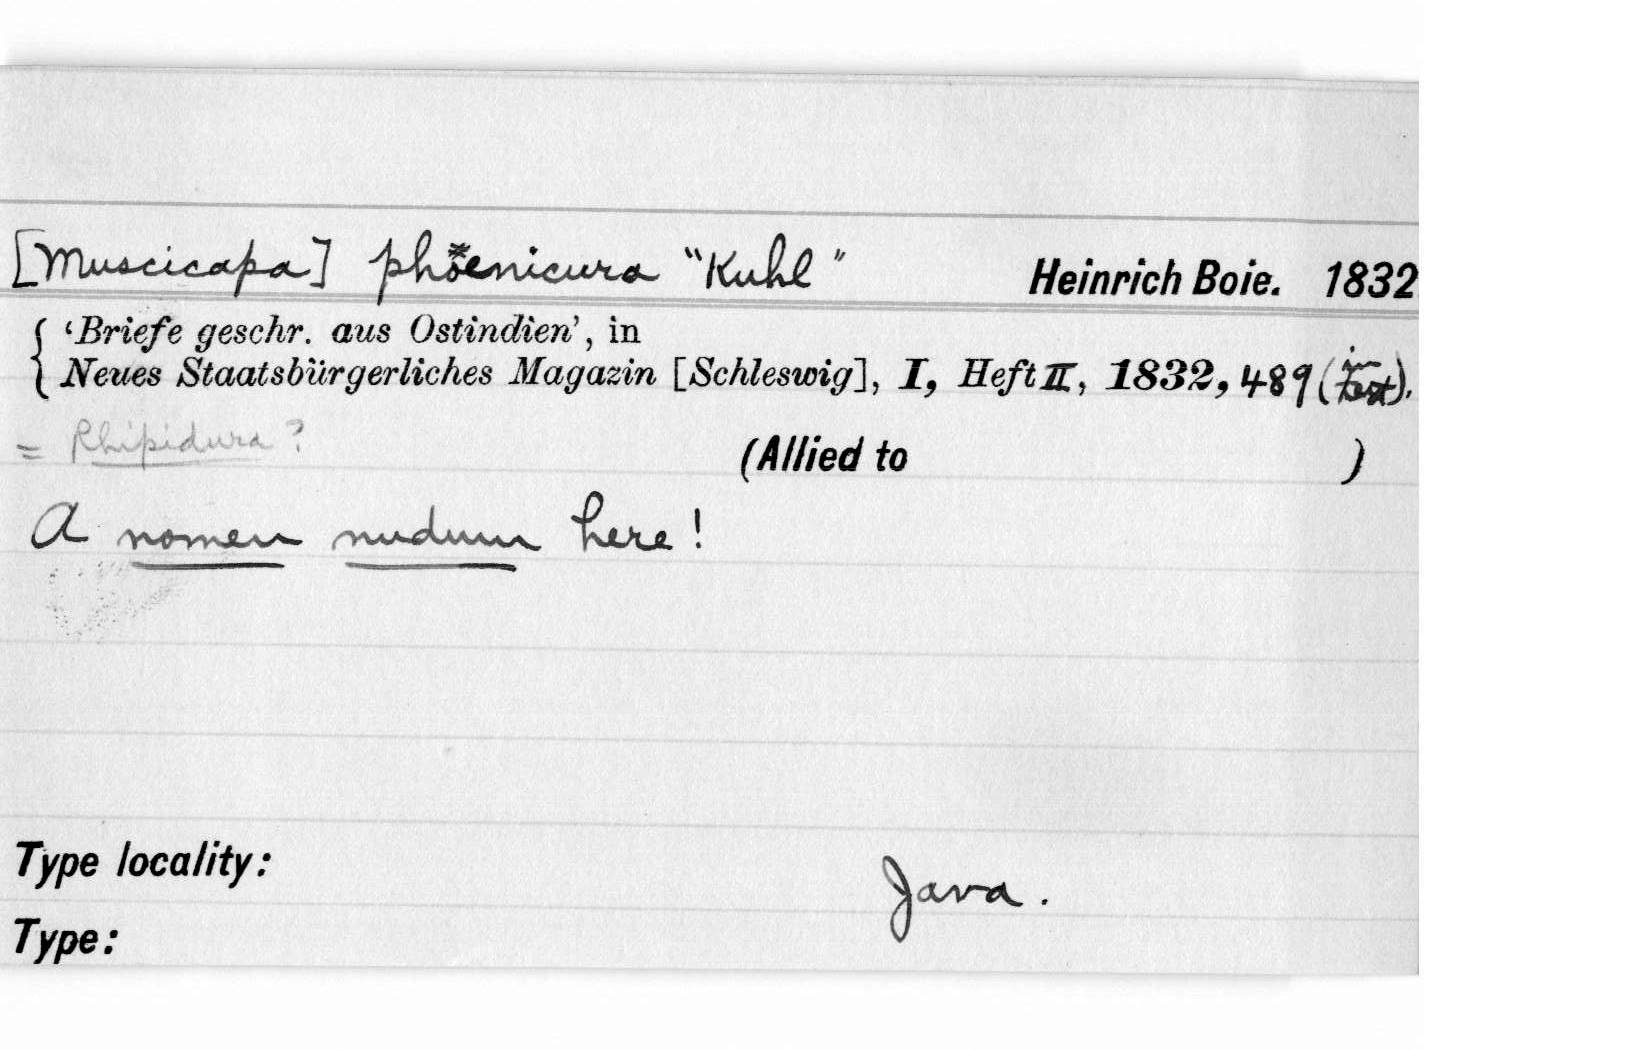 [Muscicapa] phoenicura "Kuhl" Heinrich Boie. 1832
'Briefe geschr. aus Ostindien', in
Neues Staatsbürgerliches Magazin [Schleswig], I, Heft II, 1832, 489 (in text).
= Rhipidura?
(Allied to )
A nomen nudum here!
Type locality: Java.
Type: